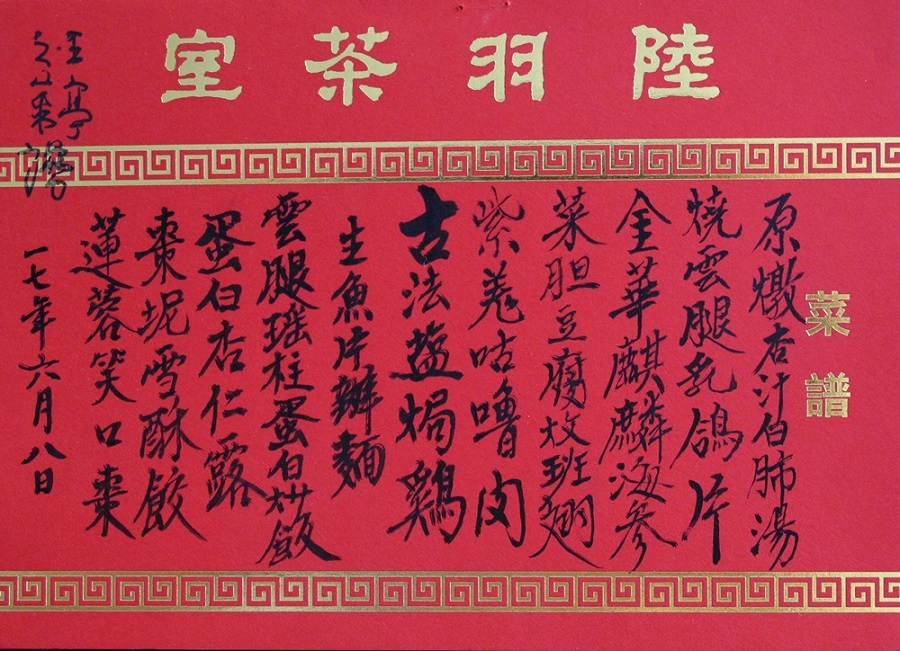 陸羽茶室
菜譜
原燉杏汁白肺湯
燒雲腿乳鴿片
金華麒麟海參
菜胆豆腐扒班翅
紫羗咕嚕肉
古法盬焗鷄
生魚片辦麵
雲腿瑤柱蛋白炒飯
蛋白杏仁露
棗坭雪酥餃
蓮蓉笑口棗
一七年六月八日